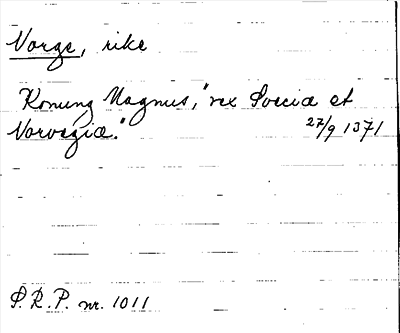 Norge, rike
Konung Magnus, "rex Svecia et
Norvegia."
27/9 1371
S.R.P. nr. 1011